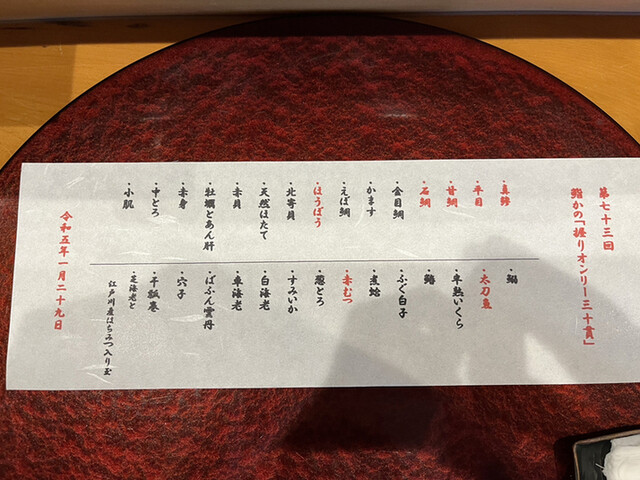 第七十三回
鮨かの「握りオンリー三十貫」
・真鯵
・平目
・甘鯛
・石鯛
・金目鯛
・かます
・えぼ鯛
・ほうぼう
・北寄貝
・天然ほたて
・赤貝
・牡蠣とあん肝
・赤身
・中とろ
・小肌
・鰯
・太刀魚
・半熟いくら
・ふぐ白子
・煮蛤
・赤むつ
・葱とろ
・すみいか
・白海老
・車海老
・ばふん雲丹
・穴子
・干瓢巻
・芝海老と
江戸川産はちみつ入り玉
令和五年一月二十九日